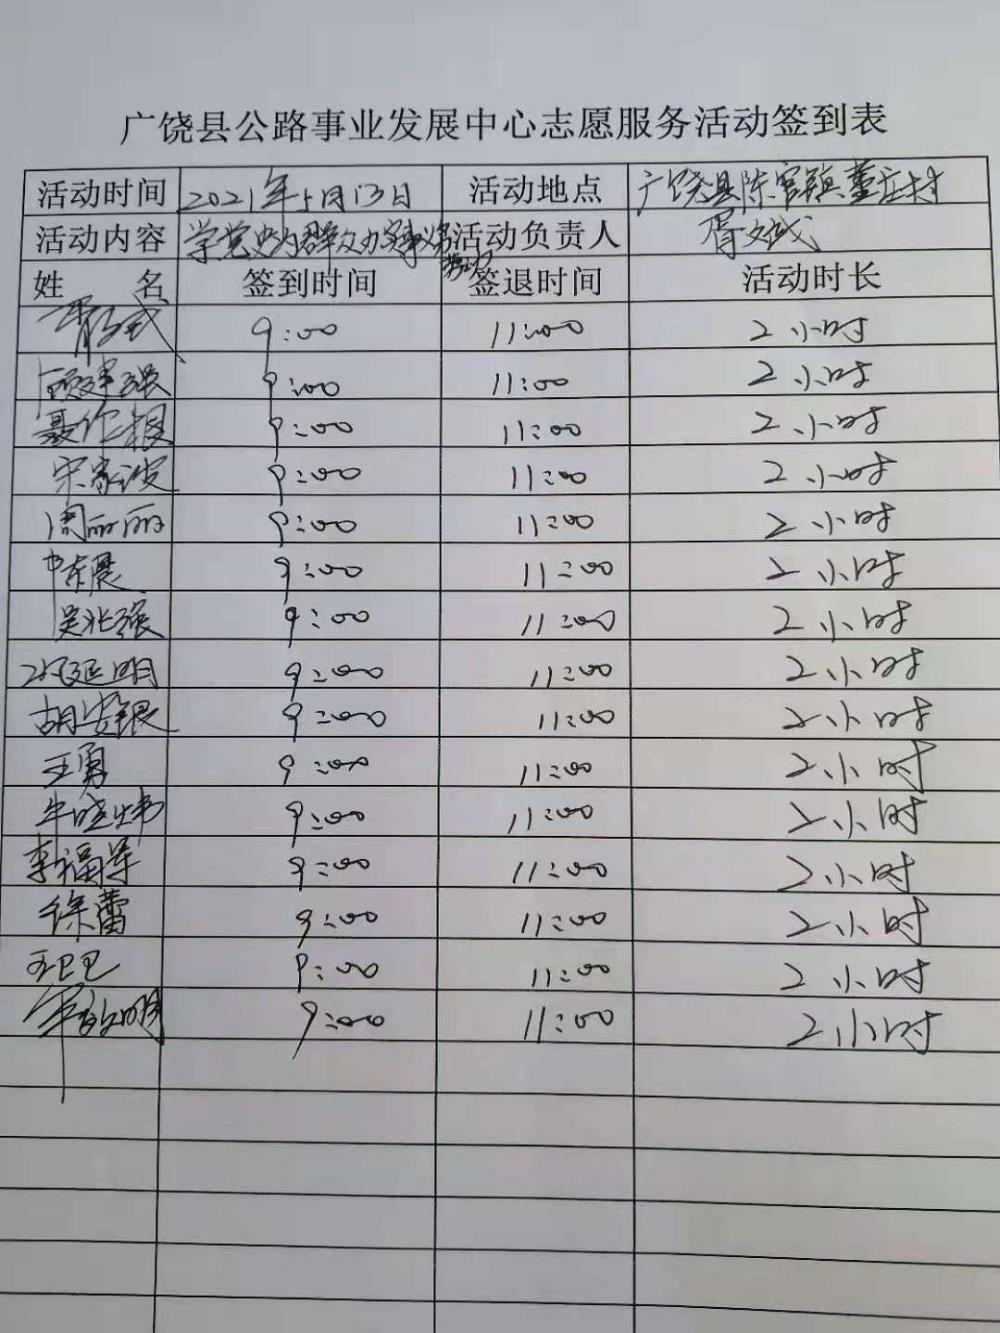 广饶县公路事业发展中心志愿服务活动签到表
活动时间 2021年5月13日 活动地点 广饶县陈官镇董庄村
活动内容 学党史为群众办实事义务劳动 活动负责人 胥文武
姓 名 签到时间 签退时间 活动时长
胥文武 9:00 11:00 2小时
顾建强 9:00 11:00 2小时
聂作根 9:00 11:00 2小时
宋家波 9:00 11:00 2小时
周丽丽 9:00 11:00 2小时
东晨 9:00 11:00 2小时
吴兆强 9:00 11:00 2小时
延明 9:00 11:00 2小时
胡安银 9:00 11:00 2小时
王勇 9:00 11:00 2小时
牛晓炜 9:00 11:00 2小时
李福军 9:00 11:00 2小时
徐蕾 9:00 11:00 2小时
王卫卫 9:00 11:00 2小时
明 9:00 11:00 2小时